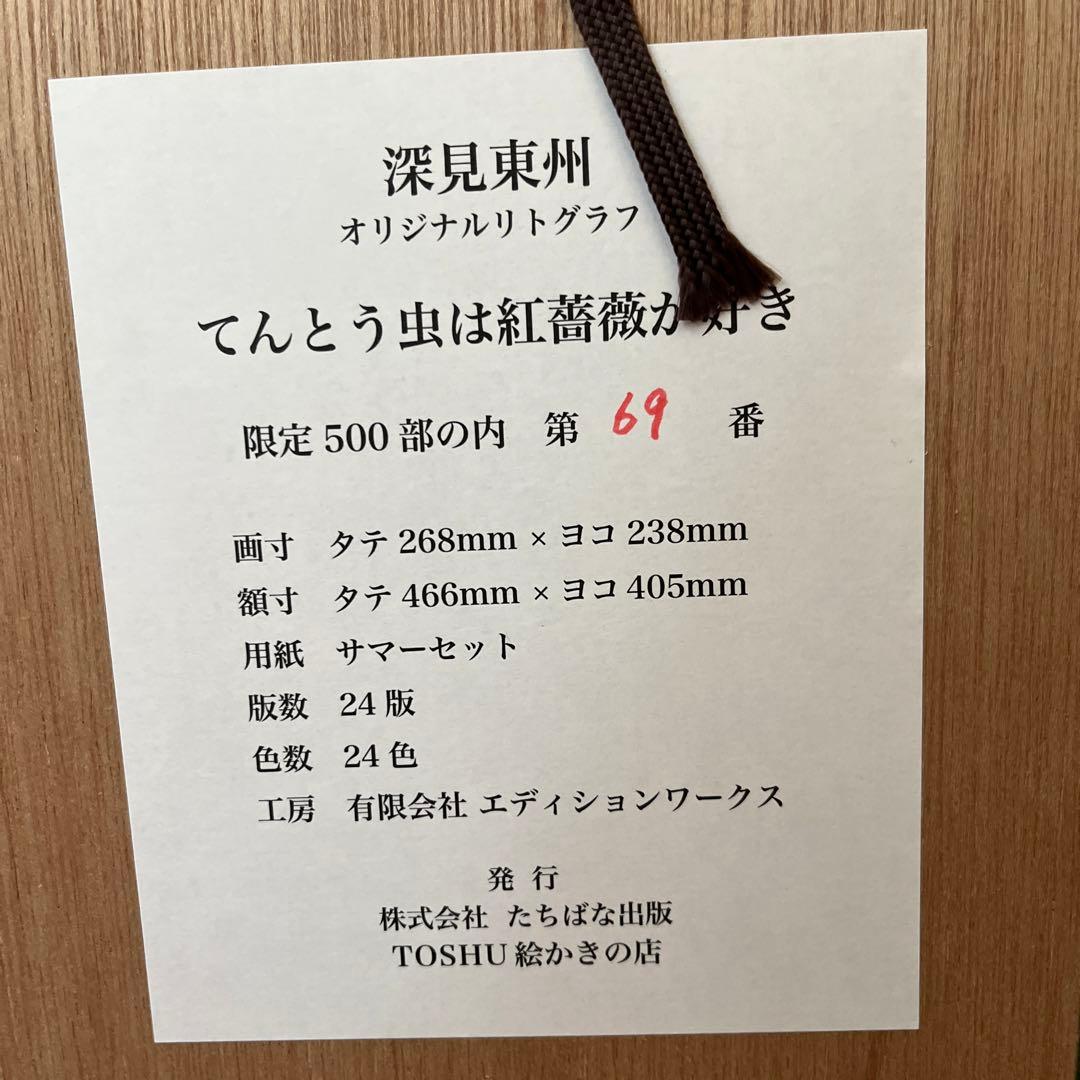 深見東州
オリジナルリトグラフ
てんとう虫は紅薔薇が好き
限定500部の内 第 69 番
画寸 タテ268mm×ヨコ238mm
額寸 タテ466mm×ヨコ405mm
用紙 サマーセット
版数 24版
色数 24色
工房 有限会社 エディションワークス
発 行
株式会社 たちばな出版
TOSHU絵かきの店